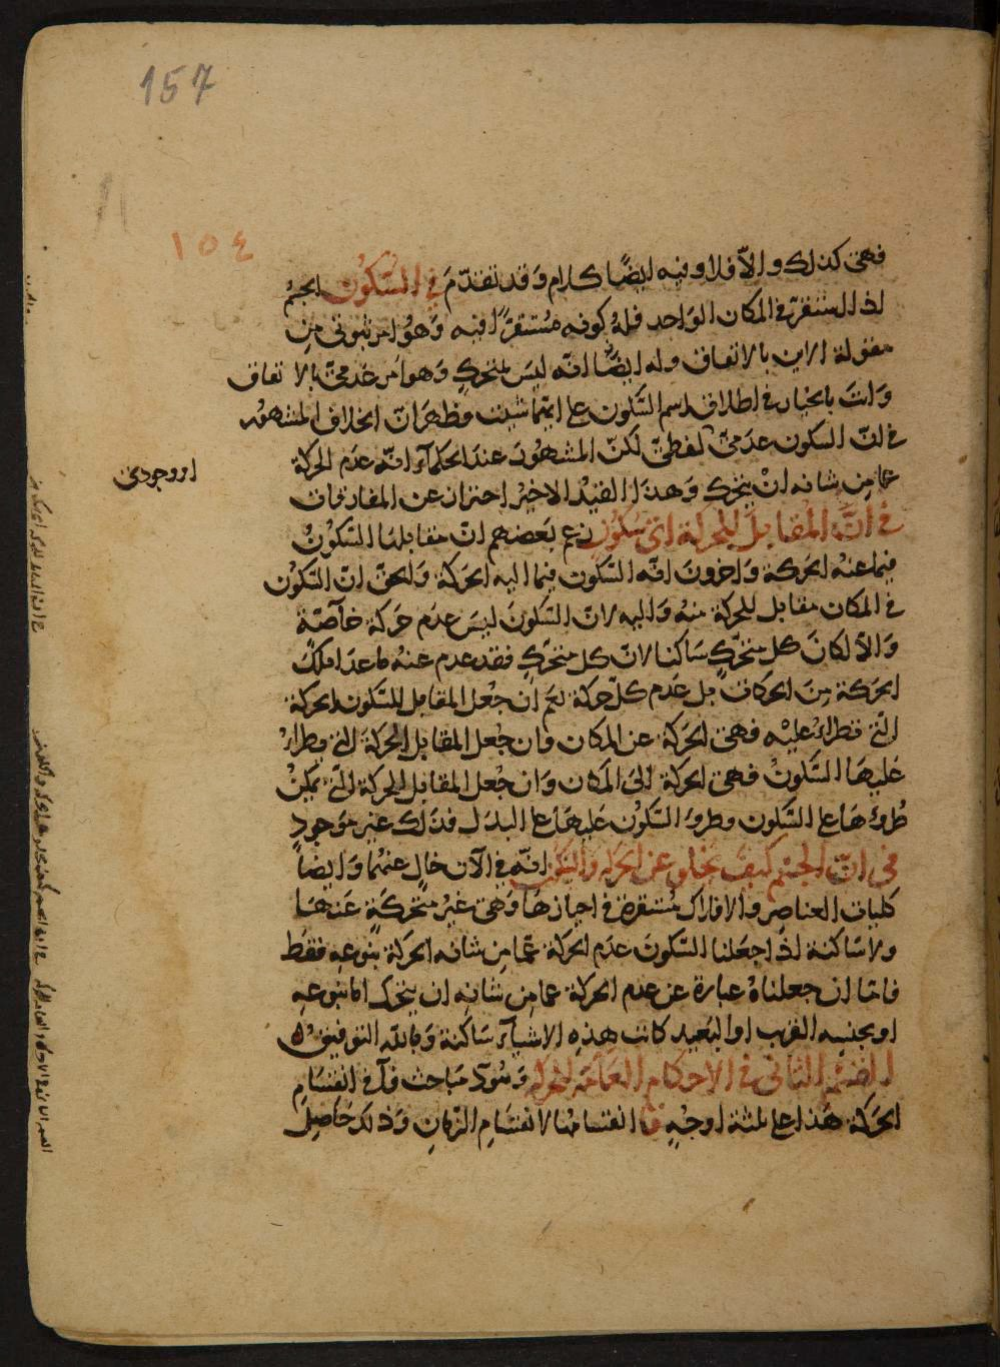 157
١٥٤
فهى كذلك والا فلا وفيه ايضًا كلام وَقد تقدّمَ في السّكُون الجسْم
اذا استقرّ في المكان الوَاحد فلهُ كونه مُستقرًّا فيه وَهُوَ امر ثبوتى مِن
مقولة الاين بالاتفاق وله ايضًا انّه ليسَ بمتحركٍ وَهوَ امر عَدمىّ بالاتفاق
وَانتَ بالخيار في اطلاق اسم السّكون على ايّهما شيت فظهرَ انّ الخلاف المشهُور
في انّ السكون عدَمىّ لفظىّ لكنّ المشهُور عندَ الحكمآء انّه عدَم الحركة
او وجودى
عمّا من شانه انْ يتحرك وَهذا القيْد الاخيْر احتراز عن المفارقات
في انَّ المقابلَ للحركة اىّ سكون زعم بَعضهم انّ مقابلها السّكُوْنُ
فيما عنهُ الحَركة وَاخرونَ انّه السّكون فيما اليه الحَركة وَالحقّ انّ السّكوْن
في المكان مقابل للحركة منهُ وَاليه لانّ السّكونَ ليسَ عدَم حَركة خاصّة
وَالاّ لكانَ كل متحرّكٍ سَاكنا لانّ كل متحركٍ فقد عدم عنهُ ما عدا تلكَ
الحَركة مِنَ الحركات بل عَدم كلّ حركة نعم ان جُعل المقابل للسّكون الحركة
التى تطراُ عليْه فهى الحَركة عن المكان وَان جُعل المقابل الحركة التى يطراُ
عَليهَا السّكونْ فهى الحركة الىَ المكان وَان جُعل المقابل الحركة التى يمكنْ
طُروءهَا على السّكون وطروء السّكوْن عَليهَا على البدَل فذلك غير مَوجودٍ
في انّ الجسْم كيفَ يخلو عن الحركة والسّكون انّه في الآن خالٍ عنهُما وَايضاً
كليات العناصر والافلاك مُستقرة في احيازهَا وَهى غيْر متحَركةٍ عَنهَا
ولا سَاكنة اذا جعَلنا السّكونَ عدَم الحركة عمّا من شانه الحَركة بنوعه فقط
فامّا ان جعلناهُ عبارة عن عدم الحركة عما من شانه ان يتحرك اما بنوعهِ
او بجنسه القريب او البَعيد كانت هذه الاشيآء سَاكنة وَبالله التوفيق
القسْم الثانى في الاحكام العَامّة للحركة وَفيهِ مَباحث فآ في انقسَامِ
الحركة هَذا على ثلثة اوجُهٍ فا انقسامُها لانقسَامِ الزمَانِ وَذلكَ حَاصِل